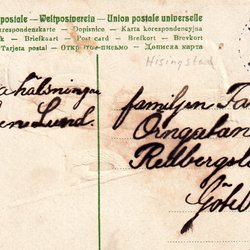 postale — Weltpostverein — Union postale universelle
rrespondenzkarte — Dopisnice — Karta korespondencyjna
k — Briefkaart — Post card — Brefkort — Brevkort
Tarjeta postal — Открытое письмо — Дописна карта
Hisingstad
a hälsningar
en Lund.
familjen
Örngatan
Redbergsl
Göteb